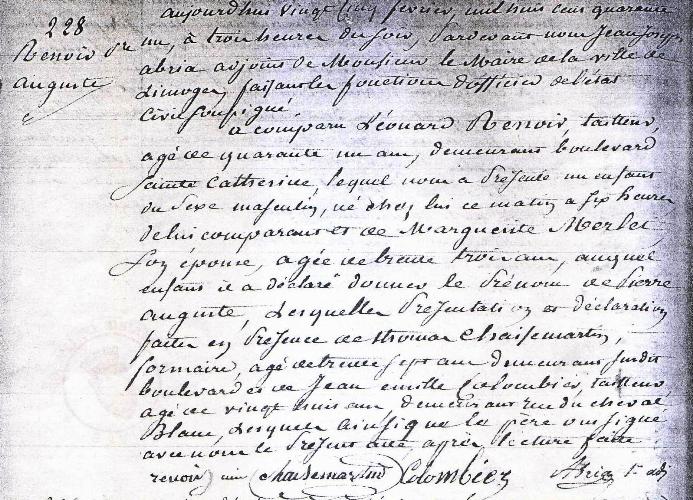 228
Renoir Pre
auguste
aujourd'hui vingt cinq février, mil huit cent quarante
un, à trois heures du soir, Pardevant nous Jean Joseph
abria adjoint de Monsieur le Maire de la ville de
Limoges, faisant les fonctions d'officier de l'état
Civil soussigné
a comparu Léonard Renoir, tailleur,
agé de quarante un ans, demeurant boulevard
Sainte Catherine, lequel nous a Présenté un enfant
du Sexe masculin, né chez lui ce matin à six heures
de lui comparant et de Marguerite Merlet,
son épouse, agée de trente trois ans, auquel
enfant il a déclaré donner le Prénom de Pierre
auguste, Lesquelles Présentation et déclaration
faites en Présence de Chaisemartin,
agé de trente sept ans demeurant susdit
boulevard et de Jean Colombier, tailleur
agé de vingt huit ans, demeurant rue du cheval
Blanc, Lesquels ainsi que le père ont signé
avec nous le Présent acte, après lecture faite.
renoir chaisemartin Colombier Abria 1er adj